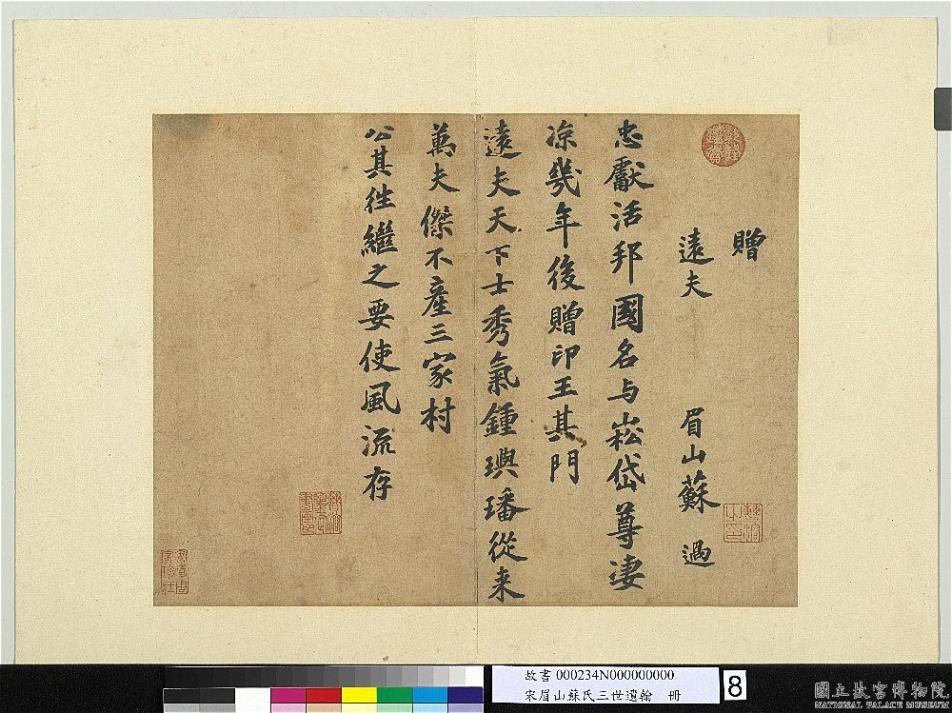 贈
遠夫 眉山蘇過
忠獻活邦國名与崧岱尊凄
凉幾年後贈印王其門
遠夫天下士秀氣鍾璵璠從来
萬夫傑不產三家村
公其徃繼之要使風流存
故書 000234N000000000
宋眉山蘇氏三世遺翰 冊
8
國立故宮博物院
NATIONAL PALACE MUSEUM